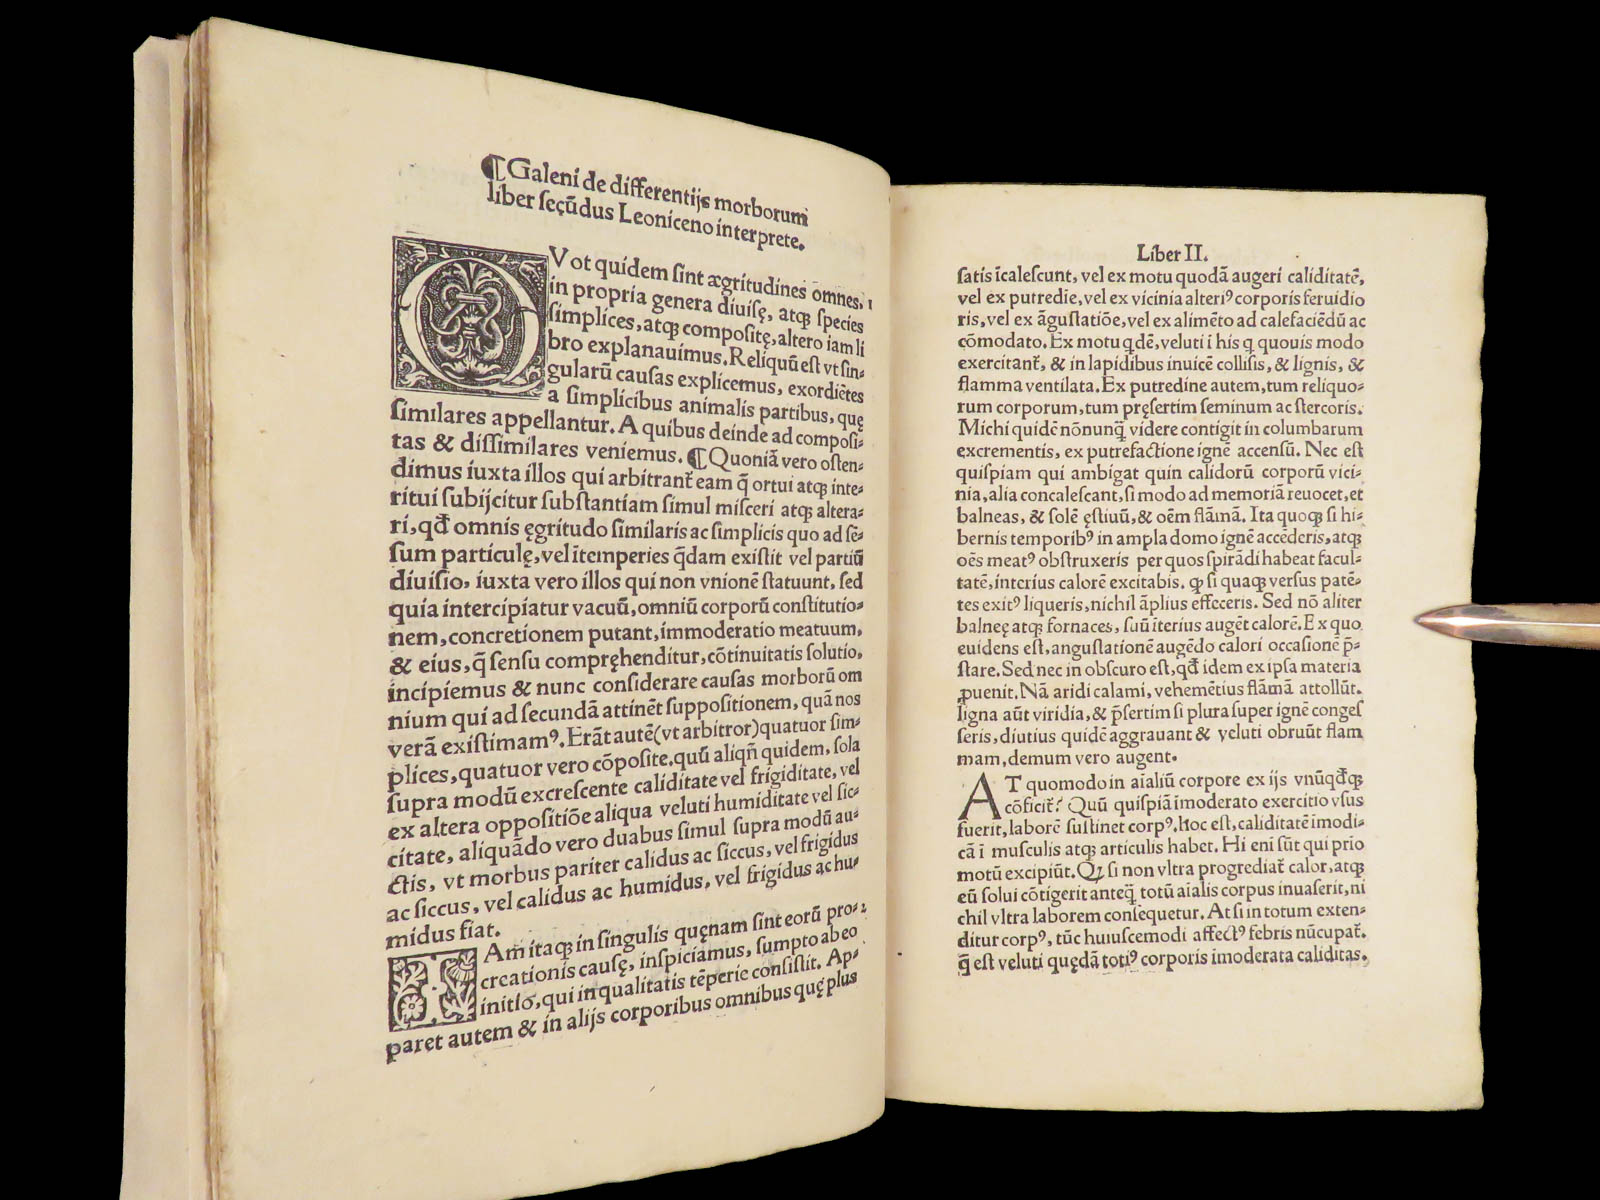 ¶Galeni de differentijs morborum
liber secūdus Leoniceno interprete.
QVot quidem sint ægritudines omnes, 1
in propria genera diuisę, atq; species
simplices, atq; compositę, altero iam li
bro explanauimus. Reliquū est vt sin-
gularū causas explicemus, exordiētes
a simplicibus animalis partibus, quę
similares appellantur. A quibus deinde ad composi-
tas & dissimilares veniemus. ¶Quoniā vero osten-
dimus iuxta illos qui arbitrant̃ eam q̄ ortui atq; inte-
ritui subijcitur substantiam simul misceri atq; altera-
ri, qđ omnis ęgritudo similaris ac simplicis quo ad sē-
sum particulę, vel ītemperies q̄dam existit vel partiū
diuisio, iuxta vero illos qui non vnionē statuunt, sed
quia intercipiatur vacuū, omniū corporū constitutio-
nem, concretionem putant, immoderatio meatuum,
& eius, q̄ sensu compręhenditur, cōtinuitatis solutio,
incipiemus & nunc considerare causas morborū om
nium qui ad secundā attinēt suppositionem, quā nos
verā existimamꝰ. Erāt autē (vt arbitror) quatuor sim-
plices, quatuor vero cōposite, quū aliqñ quidem, sola
supra modū excrescente caliditate vel frigiditate, vel
ex altera oppositiōe aliqua veluti humiditate vel sic-
citate, aliquādo vero duabus simul supra modū au-
ctis, vt morbus pariter calidus ac siccus, vel frigidus
ac siccus, vel calidus ac humidus, vel frigidus ac hu-
midus fiat.
IAm itaq; in singulis quęnam sint eorū pro- 2
creationis causę, inspiciamus, sumpto ab eo
initio, qui in qualitatis tēperie consistit. Ap-
paret autem & in alijs corporibus omnibus quę plus
Liber II.
satis īcalescunt, vel ex motu quodā augeri caliditatē,
vel ex putredīe, vel ex vicinia alteriꝰ corporis feruidio
ris, vel ex āgustatiōe, vel ex alimēto ad calefaciēdū ac
cōmodato. Ex motu q̇dē, veluti ī his q quouis modo
exercitant̃, & in lapidibus inuicē collisis, & lignis, &
flamma ventilata. Ex putredine autem, tum reliquo-
rum corporum, tum pręsertim seminum ac stercoris.
Michi quidē nōnunq̄ videre contigit in columbarum
excrementis, ex putrefactione ignē accensū. Nec est
quispiam qui ambigat quin calidorū corporū vici-
nia, alia concalescant, si modo ad memoriā reuocet, et
balneas, & solē ęstiuū, & oēm flāmā. Ita quoq; si hi-
bernis temporibꝰ in ampla domo ignē accēderis, atq;
oēs meatꝰ obstruxeris per quos spirādi habeat facul-
tatē, interius calorē excitabis. ꝙ si quaq; versus patē-
tes exitꝰ liqueris, nichil āplius effeceris. Sed nō aliter
balneę atq; fornaces, suū īterius augēt calorē. Ex quo
euidens est, angustationē augēdo calori occasionē p̄-
stare. Sed nec in obscuro est, qđ idem ex ipsa materia
ꝓuenit. Nā aridi calami, vehemētius flāmā attollūt.
ligna aūt viridia, & p̄sertim si plura super ignē conges
seris, diutius quidē aggrauant & veluti obruūt flam
mam, demum vero augent.
AT quomodo in aīaliū corpore ex ijs vnūqđq;
cōficit̃? Quū quispiā īmoderato exercitio vsus
fuerit, laborē sustinet corpꝰ. Hoc est, caliditatē īmodi-
cā ī musculis atq; articulis habet. Hi eni sūt qui prio
motū excipiūt. Q si non vltra progrediat̃ calor, atq;
eū solui cōtigerit anteq̄ totū aīalis corpus inuaserit, ni
chil vltra laborem consequetur. At si in totum exten-
ditur corpꝰ, tūc huiuscemodi affectꝰ febris nūcupat̃.
q̄ est veluti quędā totiꝰ corporis īmoderata caliditas.